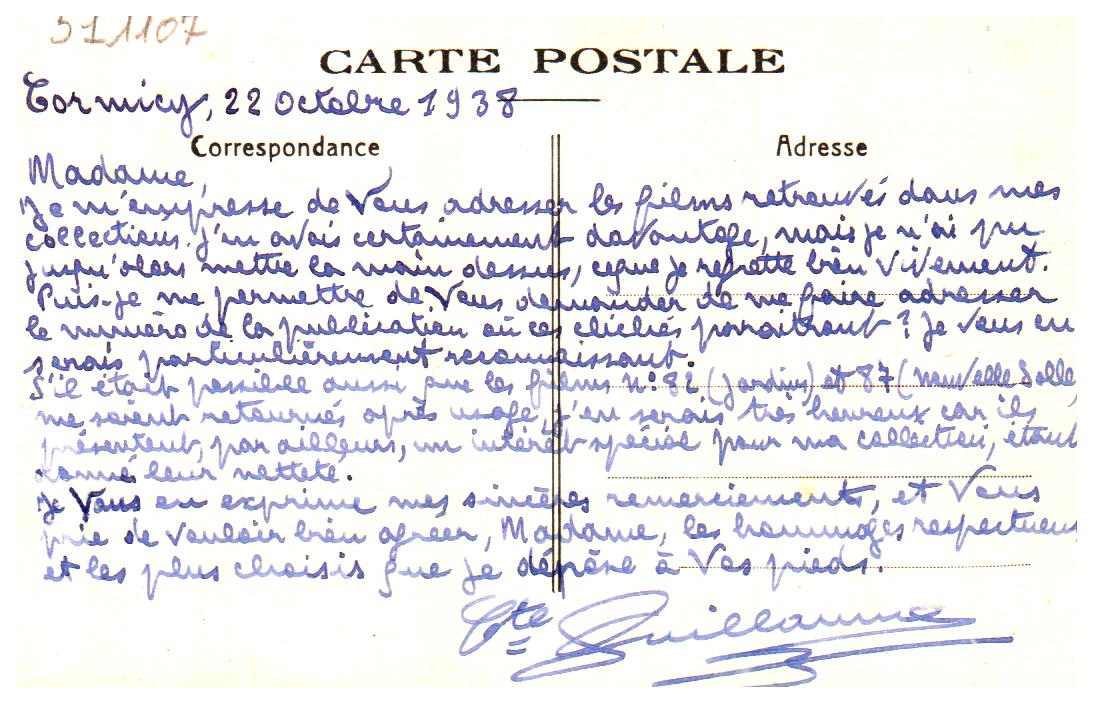 511107
CARTE POSTALE
Cormicy, 22 Octobre 1938
Correspondance
Adresse
Madame,
Je m'empresse de Vous adresser les films retrouvés dans mes
collections. J'en avais certainement davantage, mais je n'ai pu
jusqu'alors mettre la main dessus, ce que je regrette bien vivement.
Puis-je me permettre de Vous demander de me faire adresser
le numéro de la publication où ces clichés paraîtront ? Je Vous en
serais particulièrement reconnaissant.
S'il était possible aussi que les films N° 82 (Jardins) et 87 (Nouvelle Salle)
me soient retournés après usage, j'en serais très heureux car ils
présentent, par ailleurs, un intérêt spécial pour ma collection, étant
donné leur netteté.
Je Vous en exprime mes sincères remerciements, et Vous
prie de vouloir bien agréer, Madame, les hommages respectueux
et les plus choisis que je dépose à Vos pieds.
Cte Guillaume